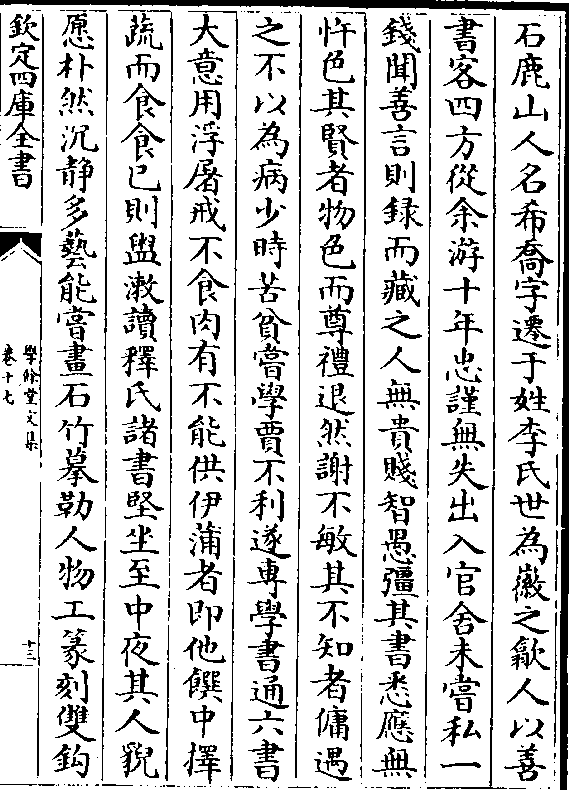 石鹿山人名希喬字遷于姓李氏世為徽之歙人以善
書客四方從余游十年忠謹無失出入官舍未嘗私一
錢聞善言則録而藏之人無貴賤智愚彊其書悉應無
忤色其賢者物色而尊禮退然謝不敏其不知者傭遇
之不以為病少時苦貧嘗學賈不利遂専學書通六書
大意用浮屠戒不食肉有不能供伊蒲者即他饌中擇
蔬而食食已則盥潄讀釋氏諸書堅坐至中夜其人貎
愿朴然沉静多藝能嘗畫石竹摹勒人物工篆刻雙鈎
欽定四庫全書
學餘堂文集
卷十七
十三